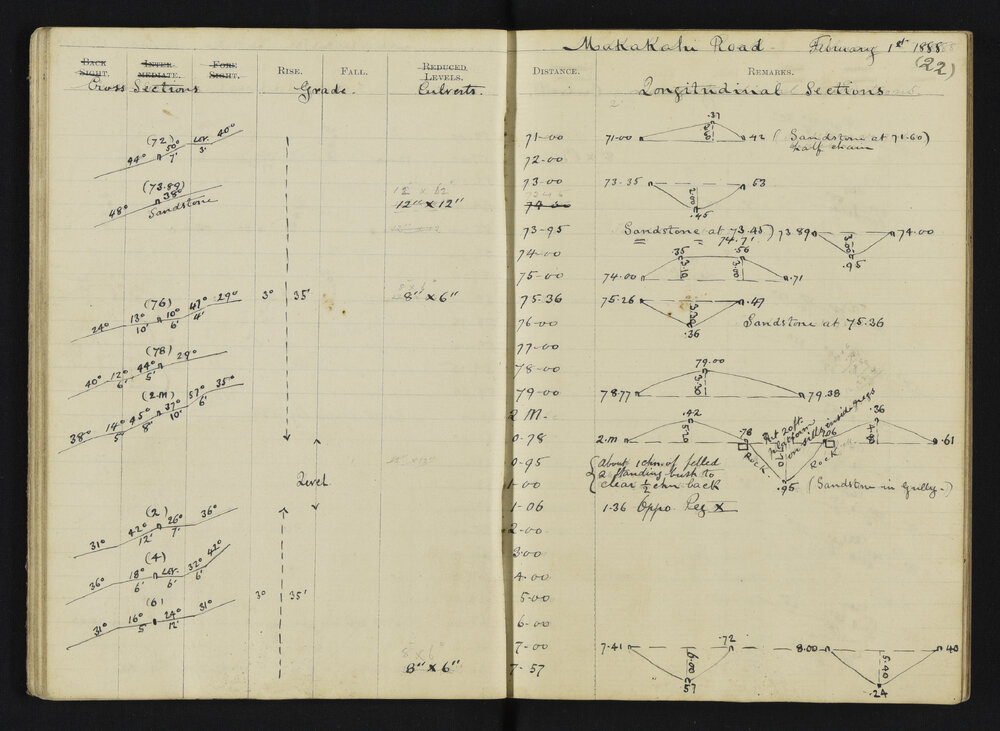 Makakahi Road February 1st 1888
(22)
BACK SIGHT. INTERMEDIATE. FORE SIGHT. RISE. FALL. REDUCED LEVELS.
Cross Sections Grade. Culverts.
(72)
44° 50° Lev. 40°
7' 3'
(73.89)
48° 38°
Sandstone
12" x 12"
12" x 12"
(76)
24° 13° 10° 47° 29°
10' 6' 4'
3° 35'
8" x 6"
(78)
40° 12° 44° 29°
6' 5'
(2.M)
38° 14° 45° 37° 57° 35°
5' 8" 10' 6'
Level
(2)
31° 42° 26° 36°
12' 7'
(4)
36° 18° Lev. 32° 42°
6' 6' 6'
(6)
31° 16° 24° 31°
5' 12'
3° 35'
8 x 6"
8" x 6"
DISTANCE. REMARKS.
Longitudinal Sections
71-00
72-00
73-00
74-50
73-95
74-00
75-00
75-36
76-00
77-00
78-00
79-00
2 M.
0-78
0-95
1-00
1-06
2-00
3-00
4-00
5-00
6-00
7-00
7-57
71-00 .37 .42 (Sandstone at 71.60)
half chain
73-35 53
2.00
.45
Sandstone at 73.45) 73.89 74.00
" 74.71
3.00
.95
74.00 .35 .56 .71
3.10 3.00
75.26 .47
3.20
.36
Sandstone at 75.36
79.00
78.77 79.38
2.M .42 .78 1.06 .36 .61
Put 20ft. platform on sills inside pegs
Rock Rock
.95 (Sandstone in Gully.)
About 1 chn. of felled
& standing bush to
clear ½ chn back
1.36 Oppo. Peg X
7.41 .72
6.00
57
8.00 40
5.40
.24